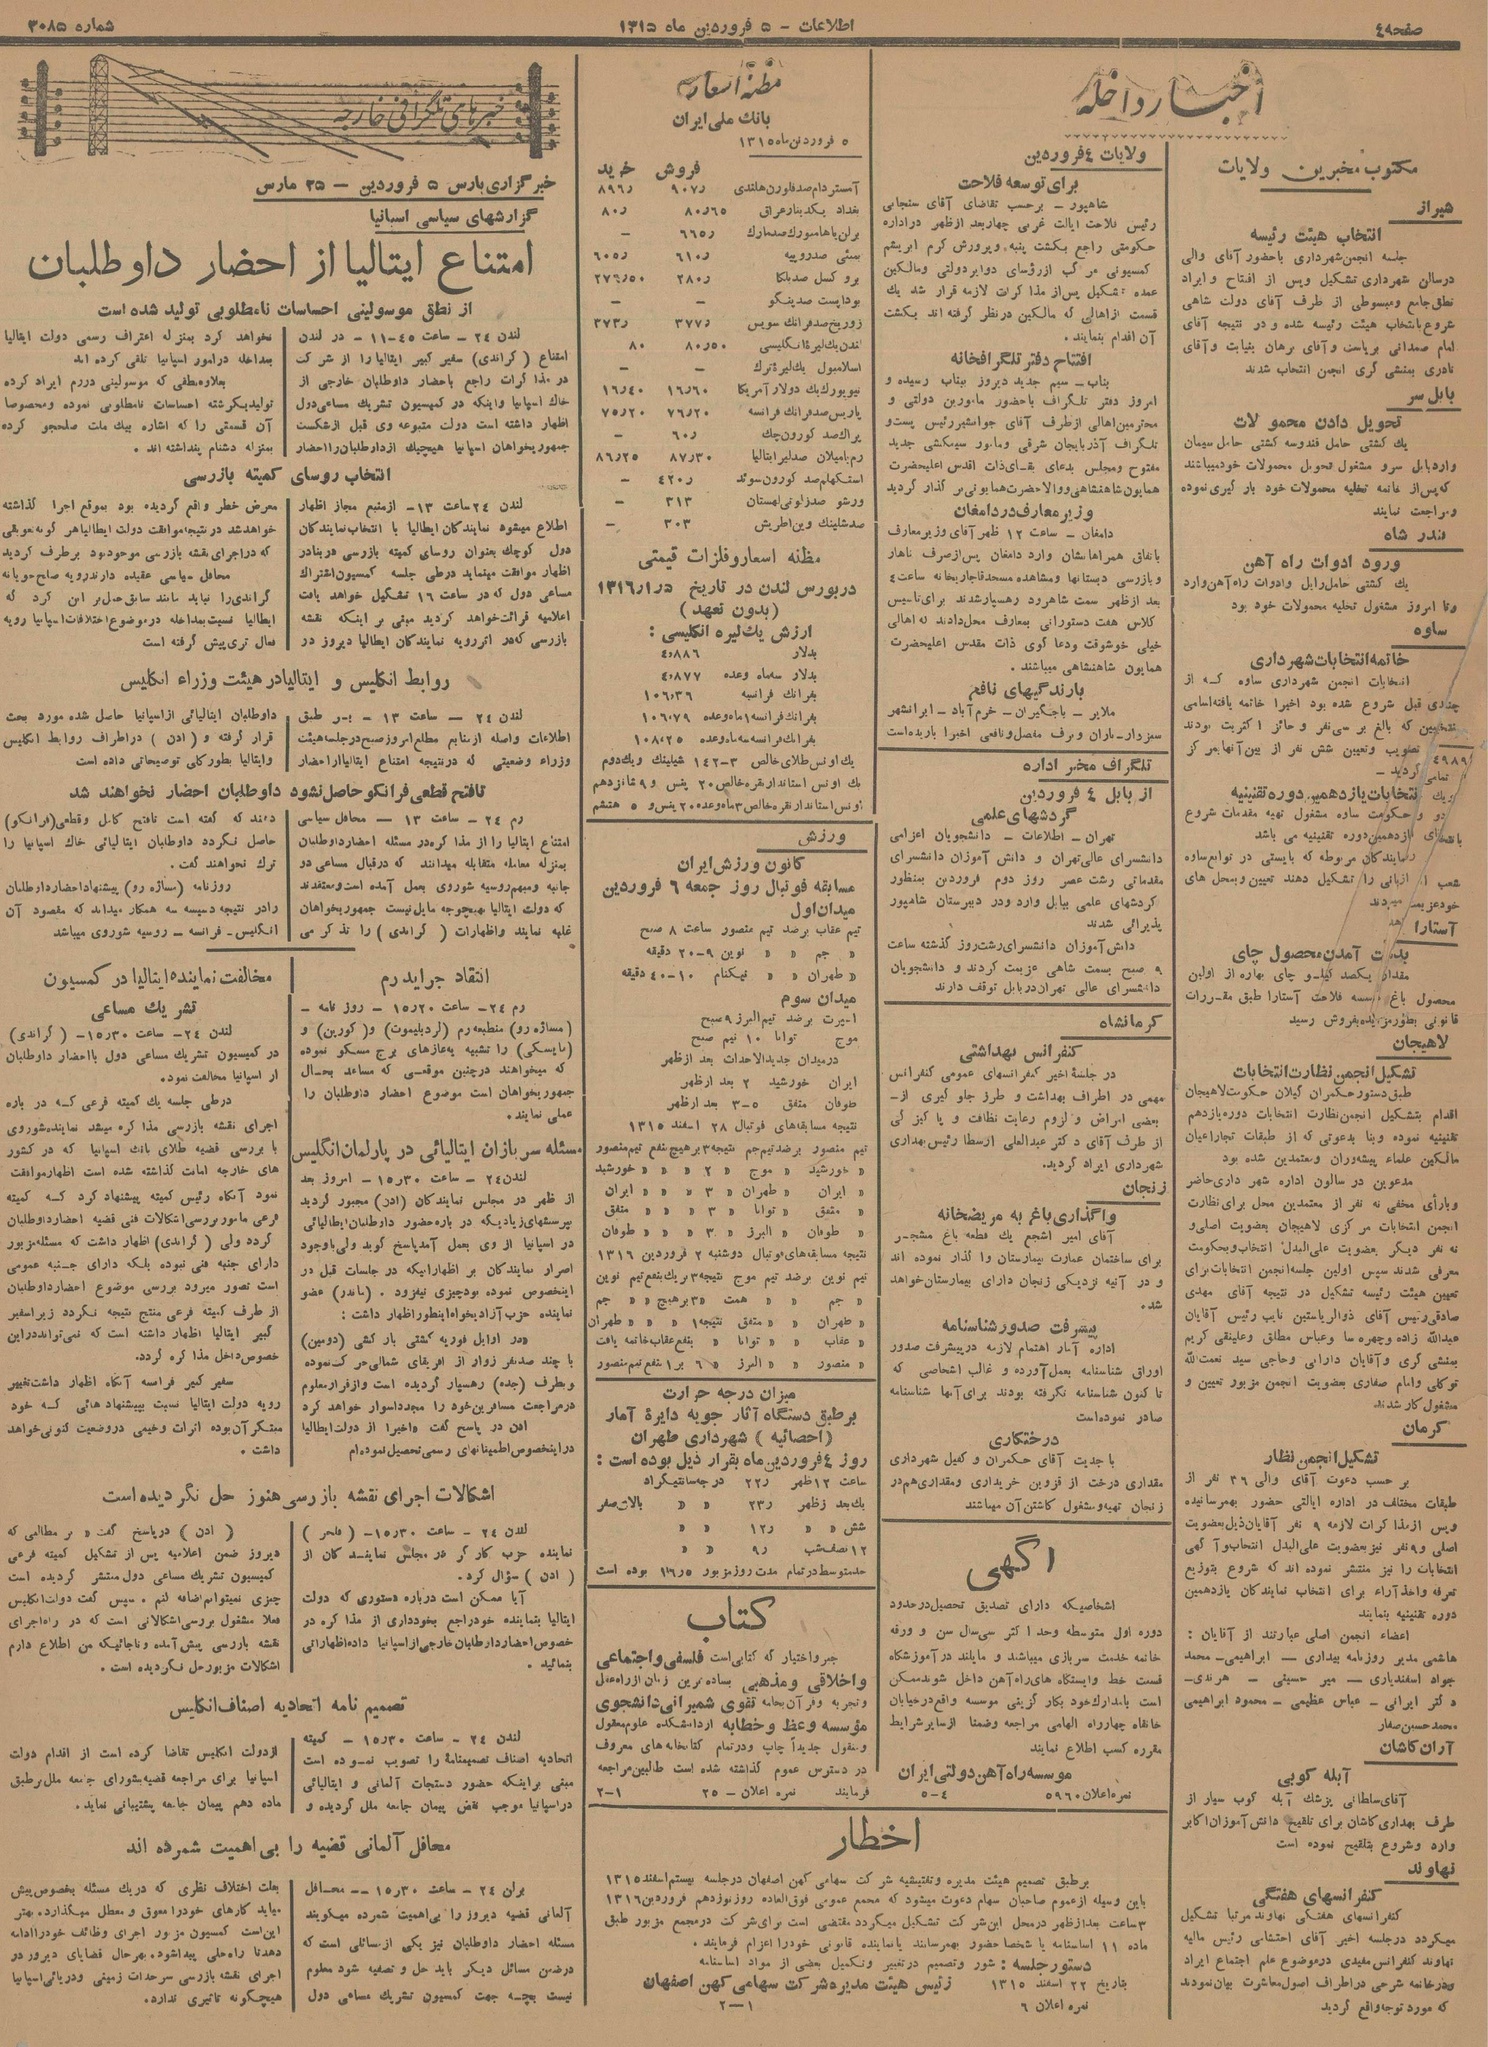 صفحه ٤
اطلاعات - ٥ فروردین ماه ١٣١٥
شماره ٣٠٨٥
اخبار داخله
مکتوب مخبرین ولایات
شیراز
انتخاب هیئت رئیسه
جلسه انجمن شهرداری با حضور آقای والی
درسالن شهرداری تشکیل و پس از افتتاح و ایراد
نطق جامع و مبسوطی از طرف آقای دولت شاهی
شروع بانتخاب هیئت رئیسه شده و در نتیجه آقای
امام صمدانی بریاست و آقای برهان بنیابت و آقای
نادری بمنشی گری انجمن انتخاب شدند
بابل سر
تحویل دادن محمولات
واردبابل سر و مشغول تحویل محمولات خود میباشند
که پس از خاتمه تخلیه محمولات خود بار گیری نموده
و مراجعت نمایند
بندر شاه
ورود ادوات راه آهن
یك کشتی حامل ریل و ادوات راه آهن وارد
و تا امروز مشغول تخلیه محمولات خود بود
ساوه
خاتمه انتخابات شهرداری
انتخابات انجمن شهرداری ساوه که از
چندی قبل شروع شده بود اخیرا خاتمه یافته اسامی
منتخبین که بالغ بر سی نفر و حائز اکثریت بودند
آستارا
بدست آمدن محصول چای
لاهیجان
تشکیل انجمن نظارت انتخابات
طبق دستور حکمران گیلان حکومت لاهیجان
اقدام بتشکیل انجمن نظارت انتخابات دوره یازدهم
تقنینیه نموده و بنا بدعوتی که از طبقات تجار اعیان
مالکین علماء پیشه وران و معتمدین شده بود
مدعوین در سالون اداره شهر داری حاضر
وبارأی مخفی نه نفر از معتمدین محل برای نظارت
انجمن انتخابات مرکزی لاهیجان بعضویت اصلی و
نه نفر دیگر بعضویت علی البدل انتخاب وبحکومت
معرفی شدند سپس اولین جلسه انجمن انتخابات برای
تعیین هیئت رئیسه تشکیل در نتیجه آقای مهدی
صادقی رئیس آقای ذوالریاستین نایب رئیس آقایان
توکلی و امام صفاری بعضویت انجمن مزبور تعیین و
مشغول کار شدند
کرمان
تشکیل انجمن نظار
بر حسب دعوت آقای والی ٣٦ نفر از
طبقات مختلف در اداره ایالتی حضور بهمرسانیده
وپس از مذاکرات لازمه ٩ نفر آقایان ذیل بعضویت
اصلی و ٩ نفر نیز بعضویت علی البدل انتخاب و آگهی
انتخابات را نیز منتشر نموده اند که شروع بتوزیع
تعرفه واخذ آراء برای انتخاب نمایندگان یازدهمین
دوره تقنینیه بنمایند
اعضاء انجمن اصلی عبارتند از آقایان :
هاشمی مدیر روزنامه بیداری – ابراهیمی – محمد
جواد اسفندیاری – میر حسینی – هرندی –
دکتر ایرانی – عباس عظیمی – محمود ابراهیمی
محمد حسین صفار
آران کاشان
آبله کوبی
آقای سلطانی پزشك آبله کوب سیار از
طرف بهداری کاشان برای تلقیح دانش آموزان اکابر
وارد وشروع بتلقیح نموده است
نهاوند
کنفرانسهای هفتگی
کنفرانسهای هفتگی نهاوند مرتبا تشکیل
میگردد درجلسه اخیر آقای احتشامی رئیس مالیه
نهاوند کنفرانس مفیدی درموضوع علم اجتماع ایراد
ودرخاتمه شرحی دراطراف اصول معاشرت بیان نمودند
که مورد توجه واقع گردید
ولایات ٤ فروردین
برای توسعه فلاحت
شاهپور – برحسب تقاضای آقای سنجابی
رئیس فلاحت ایالت غربی چهار بعد از ظهر در اداره
حکومتی راجع بکشت پنبه و پرورش کرم ابریشم
کمسیونی مرکب از رؤسای دوایر دولتی و مالکین
عمده تشکیل پس از مذاکرات لازمه قرار شد یك
قسمت از اهالی که مالکین در نظر گرفته اند بکشت
آن اقدام بنمایند.
افتتاح دفتر تلگرافخانه
بناب – سیم جدید دیروز ببناب رسیده و
امروز دفتر تلگراف با حضور مأمورین دولتی و
محترمین اهالی از طرف آقای جوانشیر رئیس پست و
تلگراف آذربایجان شرقی و مأمور سیمکشی جدید
مفتوح و مجلس بدعای بقای ذات اقدس اعلیحضرت
همایون شاهنشاهی و والاحضرت همایونی بر گذار گردید
وزیر معارف در دامغان
دامغان – ساعت ١٢ ظهر آقای وزیر معارف
باتفاق همراهانشان وارد دامغان پس از صرف ناهار
و بازرسی دبستانها ومشاهده مسجد قاجار بخانه ساعت ٤
بعد از ظهر سمت شاهرود رهسپار شدند برای تاسیس
کلاس هفت دستوراتی بمعارف محل دادند که اهالی
خیلی خوشوقت ودعا گوی ذات مقدس اعلیحضرت
همایون شاهنشاهی میباشند .
بارندگیهای نافع
ملایر – باجگیران – خرم آباد – ایرانشهر
سبزوار – باران وبرف مفصل ونافعی اخیرا باریده است
تلگراف مخبر اداره
از بابل ٤ فروردین
گردشهای علمی
تهران – اطلاعات – دانشجویان اعزامی
دانشسرای عالی تهران و دانش آموزان دانشسرای
مقدماتی رشت عصر روز دوم فروردین بمنظور
گردشهای علمی ببابل وارد ودر دبیرستان شاهپور
پذیرائی شدند
دانش آموزان دانشسرای رشت روز گذشته ساعت
٩ صبح بسمت شاهی عزیمت کردند و دانشجویان
دانشسرای عالی تهران دربابل توقف دارند
کرمانشاه
کنفرانس بهداشتی
در جلسه اخیر کنفرانسهای عمومی کنفرانس
مهمی در اطراف بهداشت و طرز جلو گیری از
بعضی امراض و لزوم رعایت نظافت و پاکیزگی
از طرف آقای دکتر عبدالعلی ارسطا رئیس بهداری
شهرداری ایراد گردید.
زنجان
واگذاری باغ به مریضخانه
آقای امیر اشجع یك قطعه باغ مشجر
برای ساختمان عمارت بیمارستان وا گذار نموده اند
و در آتیه نزدیکی زنجان دارای بیمارستان خواهد
شد.
پیشرفت صدور شناسنامه
اداره آمار اهتمام لازمه درپیشرفت صدور
اوراق شناسنامه بعمل آورده و غالب اشخاصی که
تا کنون شناسنامه نگرفته بودند برای آنها شناسنامه
صادر نموده است
درختکاری
با جدیت آقای حکمران و کفیل شهرداری
مقداری درخت از قزوین خریداری ومقداری هم در
زنجان تهیه ومشغول کاشتن آن میباشند
آگهی
اشخاصیکه دارای تصدیق تحصیل در حدود
دوره اول متوسطه وحد اکثر سی سال سن و ورقه
خاتمه خدمت سربازی میباشند و مایلند در آموزشگاه
قسمت خط وایستگاه های راه آهن داخل شوند ممکن
است بامدارك خود بکار گزینی موسسه واقع درخیابان
خانقاه چهارراه الهامی مراجعه وضمنا از سایر شرایط
مقرره کسب اطلاع نمایند
موسسه راه آهن دولتی ایران
نمره اعلان ٥٩٦٠
٤-٥
مظنه اسعار
بانك ملی ایران
٥ فروردین ماه ١٣١٥
فروش خرید
آمستردام صد فلورن هلندی ٩٠٧ر ٨٩٦ر
بغداد یکدینار عراق ٨٠ر٦٥ ٨٠ر
برلن یا هامبورك صد مارك ٦٦٥ر –
بمبئی صد روپیه ٦١٠ر ٦٠٥ر
بروکسل صد بلگا ٢٨٠ر ٢٧٦ر٥٠
بوداپست صد پنگو – –
زوریخ صد فرانك سویس ٣٧٧ر ٣٧٣ر
لندن یك لیرۀ انگلیسی ٨٠ر٥٠ ٨٠
اسلامبول یك لیرۀ ترك – –
نیویورك یك دولار آمریکا ١٦ر٦٠ ١٦ر٤٠
پاریس صد فرانك فرانسه ٧٦ر٢٠ ٧٥ر٢٠
پراك صد کورون چك ٦٠ر –
رم یا میلان صد لیر ایتالیا ٨٧ر٣٠ ٨٦ر٢٥
استکهلم صد کورون سوئد ٤٢٠ر –
ورشو صد زلوتی لهستان ٣١٣ –
صد شلینك وین اطریش ٣٠٣ –
مظنه اسعار و فلزات قیمتی
در بورس لندن در تاریخ ٥ر١ر١٣١٦
(بدون تعهد)
ارزش یك لیره انگلیسی :
بدلار ٤٫٨٨٦
بدلار سه ماه وعده ٤٫٨٧٧
بفرانك فرانسه ١٠٦٫٣٦
بفرانك فرانسه ١ ماه وعده ١٠٦٫٧٩
بفرانك فرانسه سه ماه وعده ١٠٨٫٢٥
یك اونس طلای خالص ٣-١٤٢ شیلینك ویك دوم
یك اونس استاندار نقره خالص ٢٠ پنس و ٩ شانزدهم
اونس استاندار نقره خالص ٣ ماه وعده ٢٠ پنس و ٥ هشتم
ورزش
کانون ورزش ایران
مسابقه فوتبال روز جمعه ٦ فروردین
میدان اول
تیم عقاب برضد تیم منصور ساعت ٨ صبح
« جم « « نوین ٩-٢٠ دقیقه
« طهران « « نیکنام ١٠-٤٠ دقیقه
میدان سوم
موج توانا ١٠ نیم صبح
درمیدان جدیدالاحداث بعد ازظهر
ایران خورشید ٢ بعد ازظهر
طوفان متفق ٣-٥ بعد ازظهر
نتیجه مسابقه های فوتبال ٢٨ اسفند ١٣١٥
تیم منصور برضد تیم جم نتیجه ٣ برهیچ بنفع تیم منصور
« خورشید « موج « ٢ « « خورشید
« ایران « طهران « ٣ « « ایران
« متفق « توانا « ٣ « « متفق
« طوفان « البرز « ٣ « « طوفان
نتیجه مسابقه های فوتبال دوشنبه ٢ فروردین ١٣١٦
تیم نوین برضد تیم موج نتیجه ٣ بریك بنفع تیم نوین
« جم « « همت «٣ برهیچ « « جم
« طهران « «متفق نتیجه ١ « « طهران
« عقاب « « توانا « بنفع عقاب خاتمه یافت
« منصور « « البرز « ٦ بر ١ بنفع تیم منصور
میزان درجه حرارت
بر طبق دستگاه آثار جویه دایرۀ آمار
(احصائیه) شهرداری طهران
روز ٤ فروردین ماه بقرار ذیل بوده است :
ساعت ١٢ ظهر ٢٢ر درجه سانتیگراد
یك بعد ز ظهر ٢٣ر « « بالای صفر
شش « « ١٢ر « «
١٢ نصف شب ٩ر « «
کتاب
جبر واختیار که کتابی است فلسفی واجتماعی
واخلاقی ومذهبی بساده ترین زبان از راه عقل
وتجربه وقرآن بخامه تقوی شمیرانی دانشجوی
مؤسسه وعظ وخطابه از دانشکده علوم معقول
ومنقول جدیداً چاپ ودرتمام کتابخانه های معروف
در دسترس عموم گذاشته شده است طالبین مراجعه
فرمایند نمره اعلان – ٢٥ ١-٢
اخطار
برطبق تصمیم هیئت مدیره و تفتیشیه شرکت سهامی کهن اصفهان درجلسه بیستم اسفند ١٣١٥
باین وسیله از عموم صاحبان سهام دعوت میشود که مجمع عمومی فوق العاده روز نوزدهم فروردین ١٣١٦
٣ ساعت بعد از ظهر در محل این شرکت تشکیل میگردد مقتضی است برای شرکت در مجمع مزبور طبق
ماده ١١ اساسنامه یا شخصا حضور بهمرسانند یا نماینده قانونی خود را اعزام فرمایند .
دستور جلسه : شور وتصمیم در تغییر وتکمیل بعضی از مواد اساسنامه
بتاریخ ٢٢ اسفند ١٣١٥
رئیس هیئت مدیره شرکت سهامی کهن اصفهان
نمره اعلان ٦
١-٢
خبرهای تلگرافی خارجه
خبر گزاری پارس ٥ فروردین – ٢٥ مارس
گزارشهای سیاسی اسپانیا
امتناع ایتالیا از احضار داوطلبان
از نطق موسولینی احساسات نامطلوبی تولید شده است
لندن ٢٤ – ساعت ٤٥-١١ – در لندن
امتناع (گراندی) سفیر کبیر ایتالیا را از شرکت
در مذاکرات راجع باحضار داوطلبان خارجی از
خاك اسپانیا واینکه در کمیسیون تشریك مساعی دول
اظهار داشته است دولت متبوعه وی قبل از شکست
جمهوریخواهان اسپانیا هیچیك از داوطلبان را احضار
نخواهد کرد بمنزله اعتراف رسمی دولت ایتالیا
بمداخله درامور اسپانیا تلقی کرده اند
بعلاوه نطقی که موسولینی دررم ایراد کرده
تولید یکرشته احساسات نامطلوبی نموده ومخصوصا
آن قسمتی را که اشاره بیك ملت صلحجو کرده
بمنزله دشنام پنداشته اند .
انتخاب روسای کمیته بازرسی
لندن ٢٤ ساعت ١٣- ازمنبع مجاز اظهار
اطلاع میشود نمایندگان ایتالیا با انتخاب نمایندگان
دول کوچك بعنوان روسای کمیته بازرسی دربنادر
اظهار موافقت مینماید درطی جلسه کمسیون اشتراك
مساعی دول که در ساعت ١٦ تشکیل خواهد یافت
اعلامیه قرائت خواهد گردید مبنی بر اینکه نقشه
بازرسی که در اثر رویه نمایندگان ایطالیا دیروز در
معرض خطر واقع گردیده بود بموقع اجرا گذاشته
خواهد شد در نتیجه موافقت دولت ایطالیا هر گونه عوایقی
که در اجرای نقشه بازرسی موجود بود برطرف گردید
محافل سیاسی عقیده دارند رویه صلح جویانه
گراندی را نباید مانند سابق حمل بر این کرد که
ایطالیا نسبت بمداخله در موضوع اختلافات اسپانیا رویه
فعال تری پیش گرفته است
روابط انگلیس و ایتالیا در هیئت وزراء انگلیس
لندن ٢٤ – ساعت ١٣ – بر طبق
اطلاعات واصله از منابع مطلع امروز صبح در جلسه هیئت
وزراء وضعیتی که در نتیجه امتناع ایتالیا از احضار
داوطلبان ایتالیائی از اسپانیا حاصل شده مورد بحث
قرار گرفته و (ادن) در اطراف روابط انگلیس
وایتالیا بطور کلی توضیحاتی داده است
تا فتح قطعی فرانکو حاصل نشود داوطلبان احضار نخواهند شد
رم ٢٤ – ساعت ١٣ – محافل سیاسی
امتناع ایتالیا را از مذاکره در مسئله احضار داوطلبان
بمنزله معامله متقابله میدانند که در قبال مساعی در
جانبه ومبهم روسیه شوروی بعمل آمده است ومعتقدند
که دولت ایتالیا بهیچوجه مایل نیست جمهوریخواهان
غلبه نمایند واظهارات (گراندی) را تذکر می
دهند که گفته است تا فتح کامل و قطعی (فرانکو)
حاصل نگردد داوطلبان ایتالیائی خاك اسپانیا را
ترك نخواهند گفت .
روزنامه (مساژه رو) پیشنهاد احضار داوطلبان
را در نتیجه دسیسه سه همکار میداند که مقصود آن
انگلیس – فرانسه – روسیه شوروی میباشد
انتقاد جراید رم
رم ٢٤ – ساعت ١٥ر٢٠ – روز نامه –
(مساژه رو) منطبعه رم (لرد پلیموت) و (کوربن) و
(مایسکی) را تشبیه به غازهای برج مسکو نموده
که میخواهند درچنین موقعی که مساعد بحال
جمهوریخواهان است موضوع احضار داوطلبان را
عملی نمایند.
مسئله سربازان ایتالیائی در پارلمان انگلیس
لندن ٢٤ – ساعت ١٥ر٣٠ – امروز بعد
از ظهر در مجلس نمایندگان (ادن) مجبور گردید
بپرسشهای زیادیکه در باره حضور داوطلبان ایطالیائی
در اسپانیا از وی بعمل آمد پاسخ گوید ولی باوجود
اصرار نمایندگان بر اظهاراتیکه در جلسات قبل در
اینخصوص نموده بود چیزی نیفزود . (ماندر) عضو
نماینده حزب آزادیخواه اینطور اظهار داشت :
«در اوایل فوریه کشتی بار کشی (دومین)
با چند صد نفر زوار از افریقای شمالی حرکت نموده
وبطرف (جده) رهسپار گردیده است و از قرار معلوم
در مراجعت مسافرین خود را مجدداً سوار خواهد کرد
ادن در پاسخ گفت «اخیرا از دولت ایطالیا
در اینخصوص اطمینانهای رسمی تحصیل نموده ام
مخالفت نماینده ایتالیا در کمسیون
تشریك مساعی
لندن ٢٤ – ساعت ١٥ر٣٠ – (گراندی)
در کمیسیون تشریك مساعی دول با احضار داوطلبان
از اسپانیا مخالفت نمود.
درطی جلسه یك کمیته فرعی که در باره
اجرای نقشه بازرسی مذاکره میشد نماینده شوروی
با بررسی قضیه طلای بانك اسپانیا که در کشور
های خارجه امانت گذاشته شده است اظهار موافقت
نمود آنگاه رئیس کمیته پیشنهاد کرد که کمیته
فرعی مامور بررسی اشکالات فنی قضیه احضار داوطلبان
گردد ولی (گراندی) اظهار داشت که مسئله مزبور
دارای جنبه فنی نبوده بلکه دارای جنبه عمومی
است تصور میرود بررسی موضوع احضار داوطلبان
از طرف کمیته فرعی منتج نتیجه نگردد زیرا سفیر
کبیر ایطالیا اظهار داشته است که نمی تواند در این
خصوص داخل مذاکره گردد.
سفیر کبیر فرانسه آنگاه اظهار داشت تغییر
رویه دولت ایطالیا نسبت بپیشنهاد هائی که خود
مبتکر آن بوده اثرات وخیمی در وضعیت کنونی خواهد
داشت .
اشکالات اجرای نقشه بازرسی هنوز حل نگردیده است
لندن ٢٤ – ساعت ١٥ر٣٠ – (فلچر)
نماینده حزب کارگر در مجلس نمایندگان از
(ادن) سؤال کرد.
آیا ممکن است درباره دستوری که دولت
ایتالیا بنماینده خود راجع بخودداری از مذاکره در
خصوص احضار داوطلبان خارجی از اسپانیا داده اظهاراتی
بنمائید .
(ادن) در پاسخ گفت « بر مطالبی که
دیروز ضمن اعلامیه پس از تشکیل کمیته فرعی
کمیسیون تشریك مساعی دول منتشر گردیده است
چیزی نمیتوانم اضافه کنم . سپس گفت دولت انگلیس
فعلا مشغول بررسی اشکالاتی است که در راه اجرای
نقشه بازرسی پیش آمده و تا جائیکه من اطلاع دارم
اشکالات مزبور حل نگردیده است .
تصمیم نامه اتحادیه اصناف انگلیس
لندن ٢٤ – ساعت ١٥ر٣٠ – کمیته
اتحادیه اصناف تصمیمنامۀ را تصویب نموده است
مبنی براینکه حضور دستجات آلمانی و ایتالیائی
در اسپانیا موجب نقض پیمان جامعه ملل گردیده و
از دولت انگلیس تقاضا کرده است از اقدام دولت
اسپانیا برای مراجعه قضیه بشورای جامعه ملل برطبق
ماده دهم پیمان جامعه پشتیبانی نماید.
محافل آلمانی قضیه را بی اهمیت شمرده اند
برلن ٢٤ – ساعت ١٥ر٣٠ – محافل
آلمانی قضیه دیروز را بی اهمیت شمرده میگویند
مسئله احضار داوطلبان نیز یکی از مسائلی است که
در ضمن مسائل دیگر باید حل و تصفیه شود معلوم
نیست بچه جهت کمسیون تشریك مساعی دول
بعلت اختلاف نظری که در یك مسئله بخصوص پیش
میاید کارهای خود را معوق و معطل میگذارد. بهتر
این است کمسیون مزبور اجرای وظائف خود را ادامه
دهد تا راه حلی پیدا شود. بهر حال قضایای دیروز در
اجرای نقشه بازرسی سرحدات زمینی ودریائی اسپانیا
هیچگونه تاثیری ندارد.